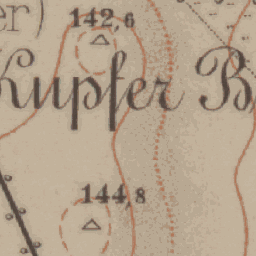 er)
142,6
Kupfer B
144,8